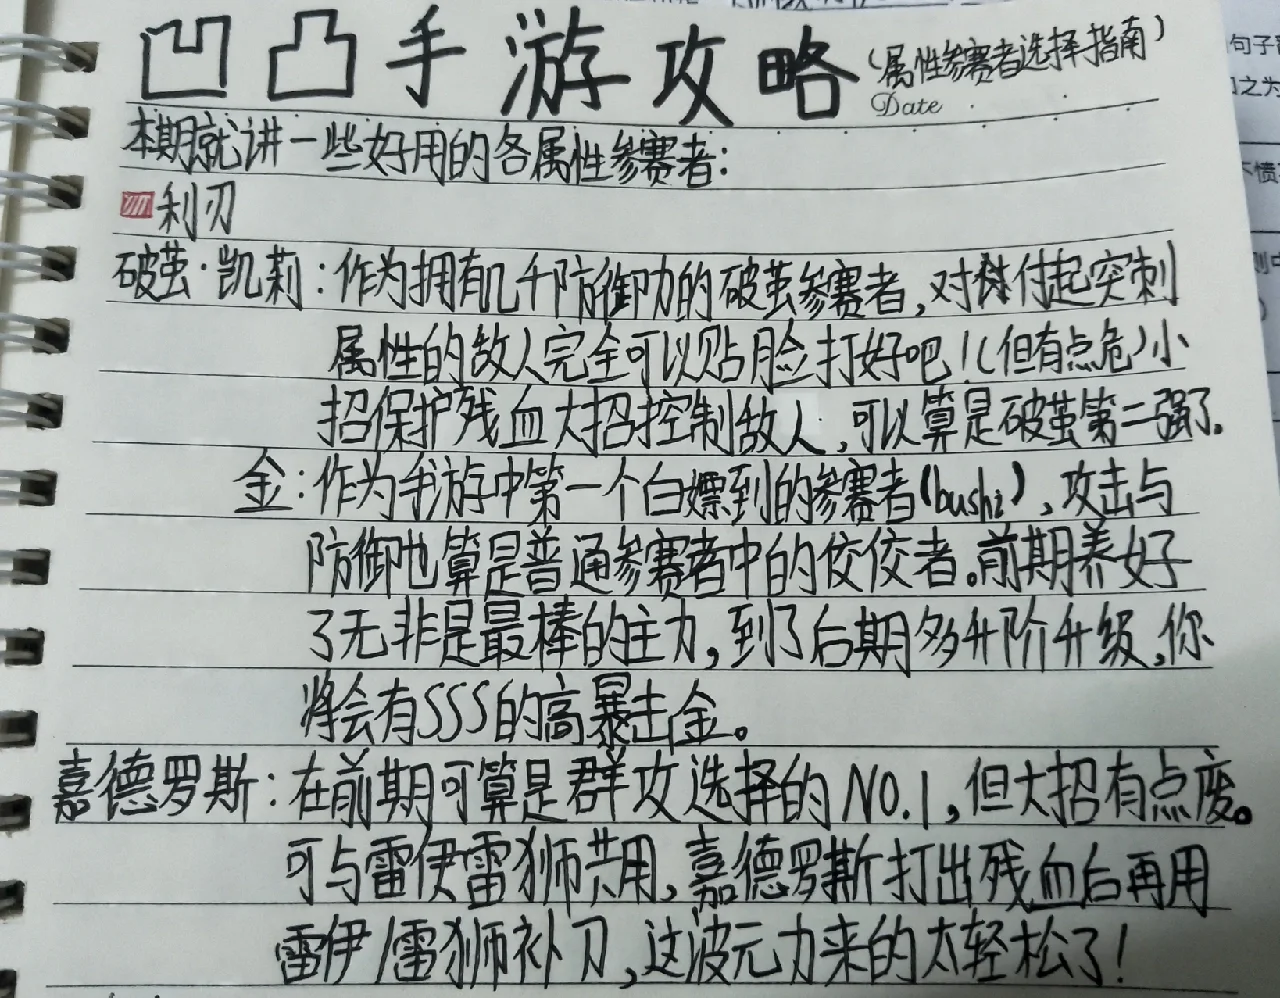 凹凸手游攻略(属性参赛者选择指南)
Date
本期就讲一些好用的各属性参赛者:
利刃
破茧·凯莉:作为拥有几千防御力的破茧参赛者,对付起突刺
属性的敌人完全可以贴脸打好吧!(但有点危)小
招保护残血大招控制敌人,可以算是破茧第二强了。
金:作为手游中第一个白嫖到的参赛者(bushi),攻击与
防御也算是普通参赛者中的佼佼者。前期养好
了无非是最棒的主力,到了后期多升阶升级,你
将会有SSS的高暴击金。
嘉德罗斯:在前期可算是群攻选择的NO.1,但大招有点废。
可与雷伊雷狮共用,嘉德罗斯打出残血后再用
雷伊/雷狮补刀,这波元力来的太轻松了!
句子
之为
不愤
则中